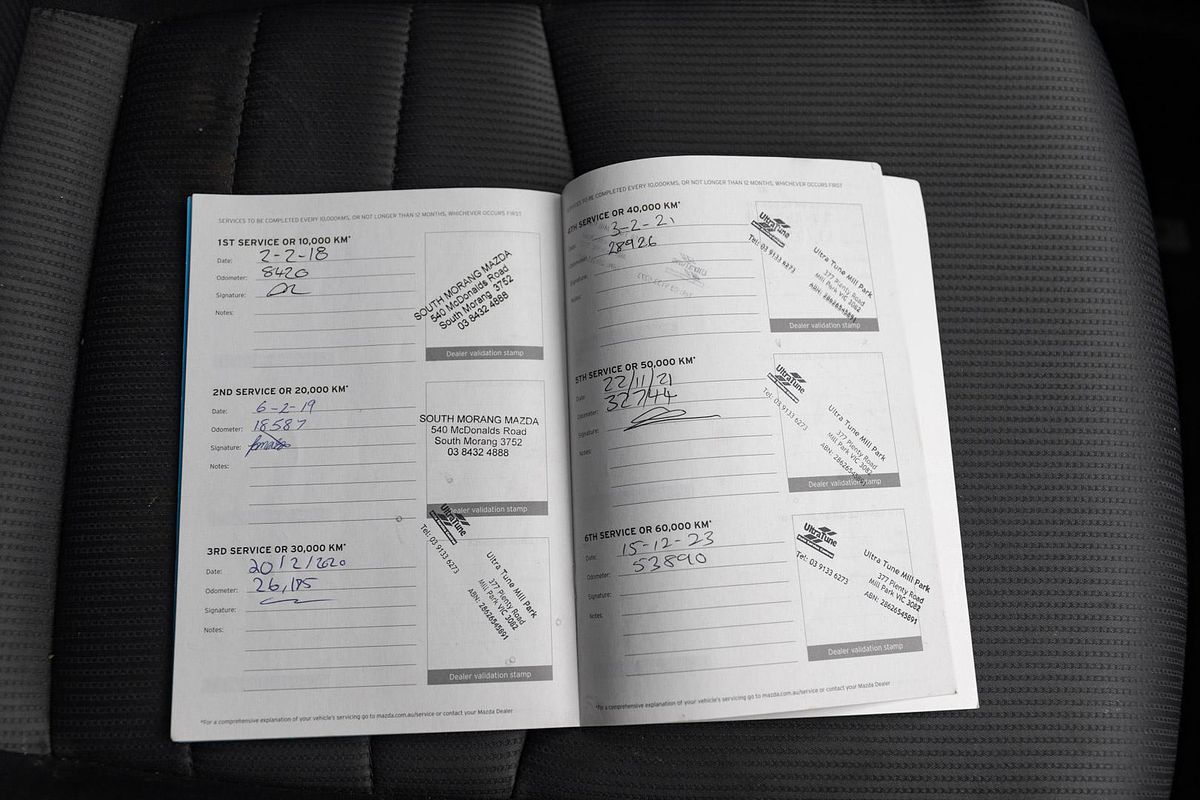 SERVICES TO BE COMPLETED EVERY 10,000KMS, OR NOT LONGER THAN 12 MONTHS, WHICHEVER OCCURS FIRST
1ST SERVICE OR 10,000 KM*
Date: 2-2-18
Odometer: 8420
Signature:
Notes:
SOUTH MORANG MAZDA
540 McDonalds Road
South Morang 3752
03 8432 4888
Dealer validation stamp
2ND SERVICE OR 20,000 KM*
Date: 6-2-19
Odometer: 18587
Signature:
Notes:
SOUTH MORANG MAZDA
540 McDonalds Road
South Morang 3752
03 8432 4888
Dealer validation stamp
3RD SERVICE OR 30,000 KM*
Date: 20/2/2020
Odometer: 26,185
Signature:
Notes:
UltraTune
Tel: 03 9133 6273
Ultra Tune Mill Park
377 Plenty Road
Mill Park VIC 3082
ABN: 28626545891
Dealer validation stamp
*For a comprehensive explanation of your vehicle's servicing go to mazda.com.au/service or contact your Mazda Dealer
SERVICES TO BE COMPLETED EVERY 10,000KMS, OR NOT LONGER THAN 12 MONTHS, WHICHEVER OCCURS FIRST
4TH SERVICE OR 40,000 KM*
Date: 3-2-21
Odometer: 28926
Signature:
Notes:
UltraTune
Tel: 03 9133 6273
Ultra Tune Mill Park
377 Plenty Road
Mill Park VIC 3082
ABN: 28626545891
Dealer validation stamp
5TH SERVICE OR 50,000 KM*
Date: 22/11/21
Odometer: 32744
Signature:
Notes:
UltraTune
Tel: 03 9133 6273
Ultra Tune Mill Park
377 Plenty Road
Mill Park VIC 3082
ABN: 28626545891
Dealer validation stamp
6TH SERVICE OR 60,000 KM*
Date: 15-12-23
Odometer: 53890
Signature:
Notes:
UltraTune
Tel: 03 9133 6273
Ultra Tune Mill Park
377 Plenty Road
Mill Park VIC 3082
ABN: 28626545891
Dealer validation stamp
*For a comprehensive explanation of your vehicle's servicing go to mazda.com.au/service or contact your Mazda Dealer